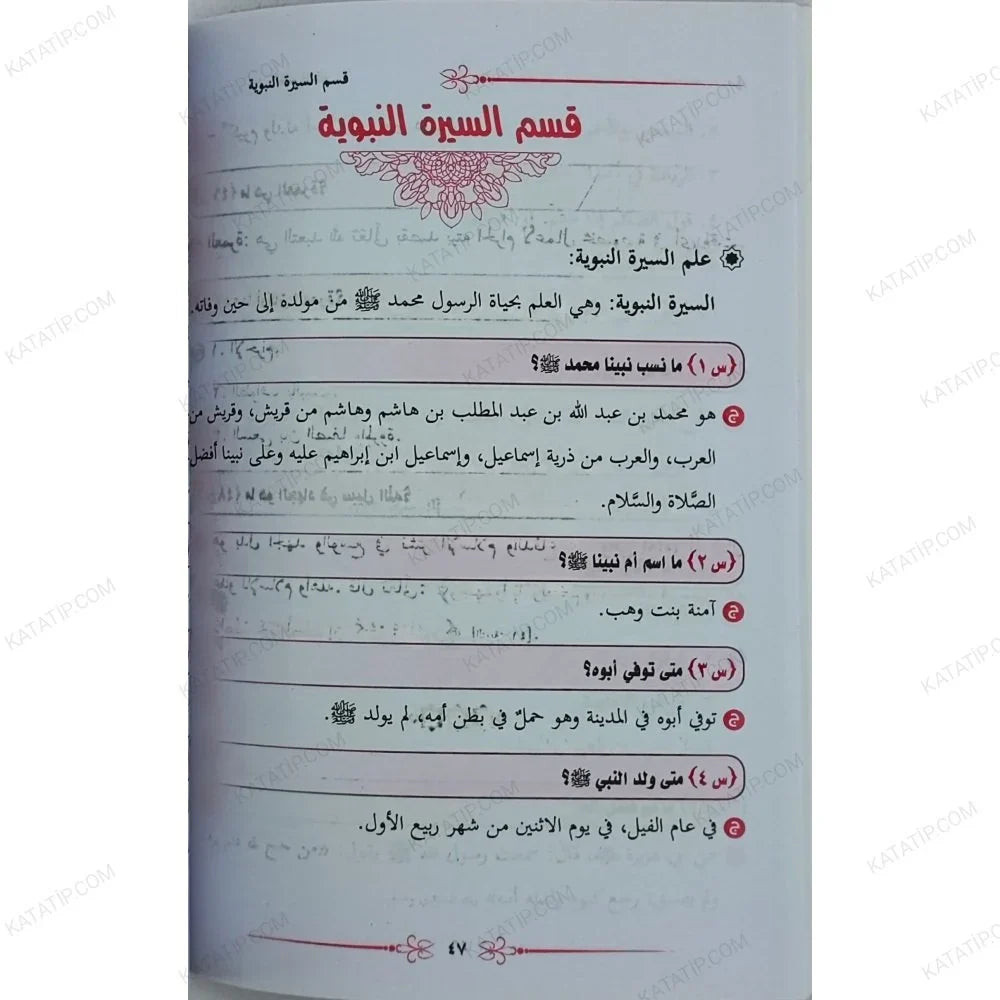 قسم السيرة النبوية
قسم السيرة النبوية
علم السيرة النبوية:
السيرة النبوية: وهي العلم بحياة الرسول محمد ﷺ من مولده إلى حين وفاته.
﴿س ١﴾ ما نسب نبينا محمد ﷺ؟
ج هو محمد بن عبد الله بن عبد المطلب بن هاشم وهاشم من قريش، وقريش من
العرب، والعرب من ذرية إسماعيل، وإسماعيل ابن إبراهيم عليه وعلى نبينا أفضل
الصَّلاة والسَّلام.
﴿س ٢﴾ ما اسم أم نبينا ﷺ؟
ج آمنة بنت وهب.
﴿س ٣﴾ متى توفي أبوه؟
ج توفي أبوه في المدينة وهو حملٌ في بطن أمه، لم يولد ﷺ.
﴿س ٤﴾ متى ولد النبي ﷺ؟
ج في عام الفيل، في يوم الاثنين من شهر ربيع الأول.
٤٧
KATATİP.COM